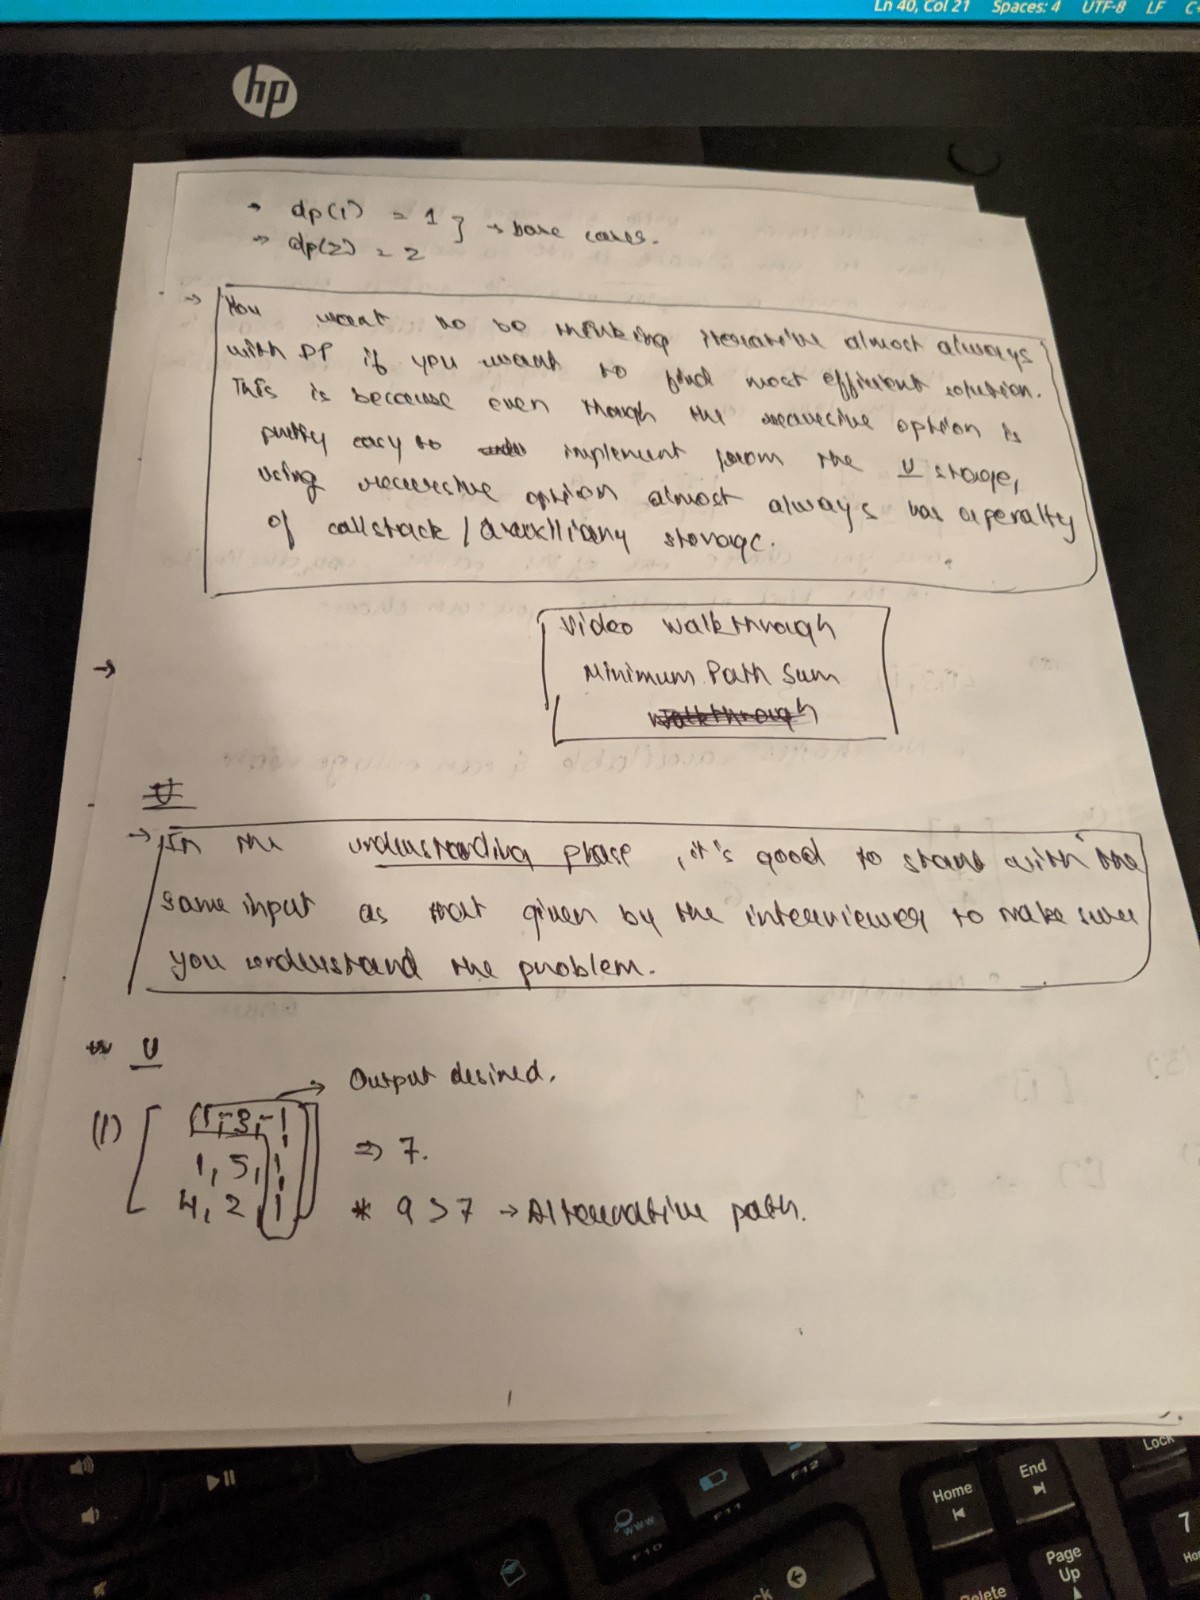 Ln 40, Col 21 Spaces: 4 UTF-8 LF
hp
→ dp(1) = 1 } → base cases.
→ dp(2) = 2
→ You want to be thinking iterative almost always
with DP if you want to find most efficient solution.
This is because even though the recursive option is
pretty easy to implement from the U stage,
using recursive option almost always has a penalty
of callstack / auxilliary storage.
→
Video Walkthrough
Minimum Path Sum
Walkthrough
U
→ In the understanding phase, it's good to start with the
same input as that given by the interviewer to make sure
you understand the problem.
U
→ Output desired.
(1) [ 1, 3, 1
1, 5, 1
4, 2, 1 ]
=> 7.
* 9 > 7 → Alternative path.
Lock
Home
End
F12
F11
www
F10
7
Page
Up